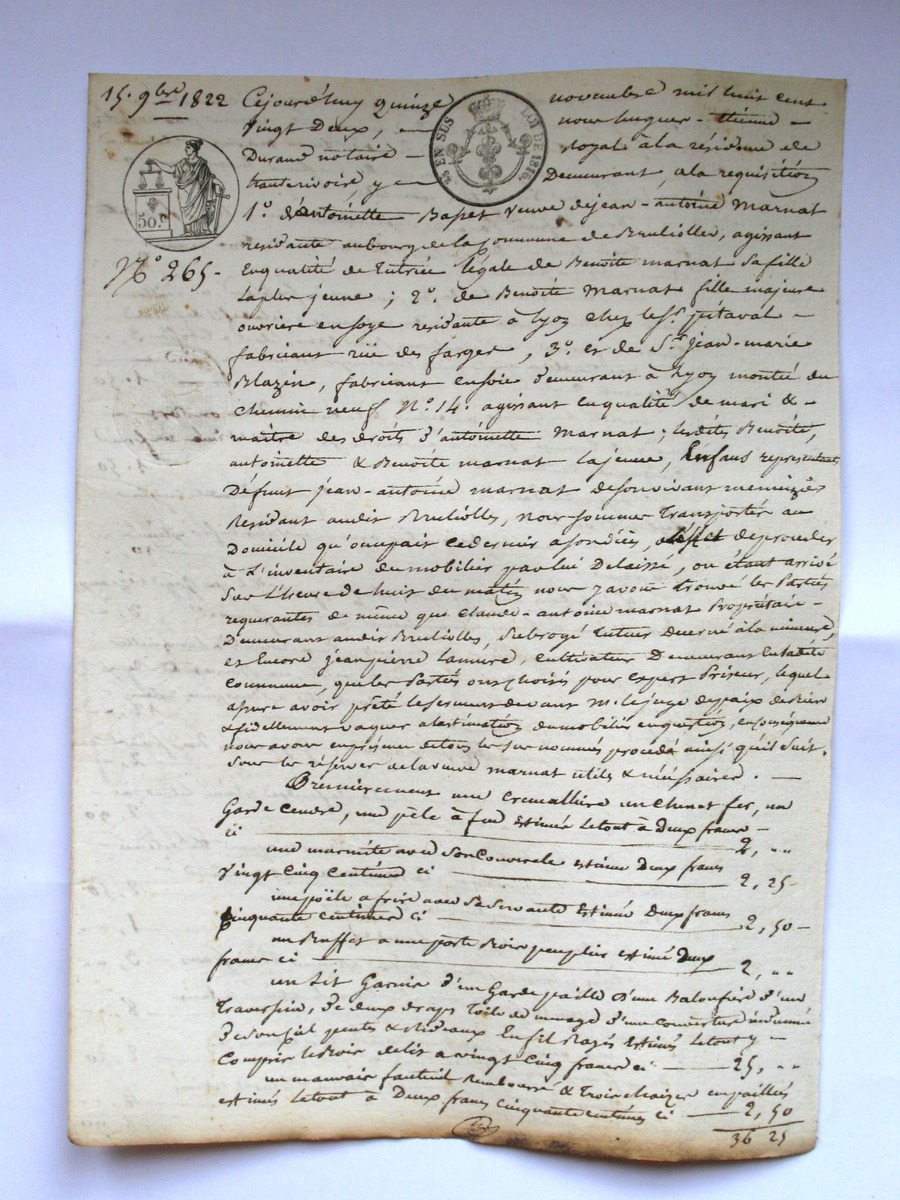 15. 9bre 1822
50.c
N° 265-
EN SUS LOI DE 1816.
Cejourd'huy quinze novembre mil huit cent
vingt Deux, nous luquer - Etienne -
Durand notaire - Royal à la résidence de
hauterivoire y Demeurant, ala requisition
1°. d'antoinette Basset veuve de jean-antoine Marnat
residante aubourg de la Commune de Bruliolles, agissant
Enqualité de tutrice légale de Benoite marnat sa fille
la plus jeune ; 2°. de Benoite Marnat fille majeure
ouvrière ensoye residante à lyon chez le Sr. pitaval -
fabricant rüe des farges, 3°. et de Sr. jean-marie
Blazin, fabricant ensoie Demeurant à lyon montée du
chemin neuf N°. 14. agissant enqualité de mari &
maitre des droits d'antoinette Marnat ; lesdites Benoite,
antoinette & Benoite marnat lajeune, Enfans representants
Défunt jean-antoine marnat desonvivant menuizier
Residant audit Brulliolles, nous sommes Transportés au
Domicile qu'occupait cedernier asondécès, deproceder
à L'inventaire du mobilier parlui Delaissé, ou étant arrivé
Sur L'heure de huit du matin nous y avons trouvé les Parties
requerantes de même que claude-antoine marnat Propriétaire -
Demeurant audit Brulliolles, Subrogé tuteur decerné àla mineure,
et Encore jeanpierre cultivateur Demeurant Enladite
Commune, queles Parties ont choisi pour expert Priseur, lequel
apres avoir prêté leserment devant Mr. lejuge depaix de
& fidellement vaquer alestimation dumobilier enquestion, enconséquence
nous avons enpresence detous les sus nommés procedé ainsi qu'il suit.
Sous les réserves delaveuve marnat utiles & nécessaires. -
Premierement une Cremalliere un chenet fer, un
Garde Cendre, une pèle à feu Estimés letout à Deux francs -
ci 2, ""
une marmite avec Son Couvercle estimé Deux francs
Vingt Cinq Centimes ci 2, 25-
une poële a frire avec Sa Servante Estimé Deux francs
Cinquante Centimes ci 2, 50-
un Buffet a une porte Bois peuplier estimé Deux
francs ci 2, ""
un Lit Garnie d'un Garde paille d'une Baloufière d'un
Traversin, de deux draps Toile de menage d'une couverture
pents & Rideaux En fil Rayés Estimés letout y -
Compris leBois delit a vingt Cinq francs ci 25, ""
un mauvais fauteuil Rembourré & Trois chaizes enpaillés
estimés letout à Deux francs cinquante centimes ci 2, 50
36 25